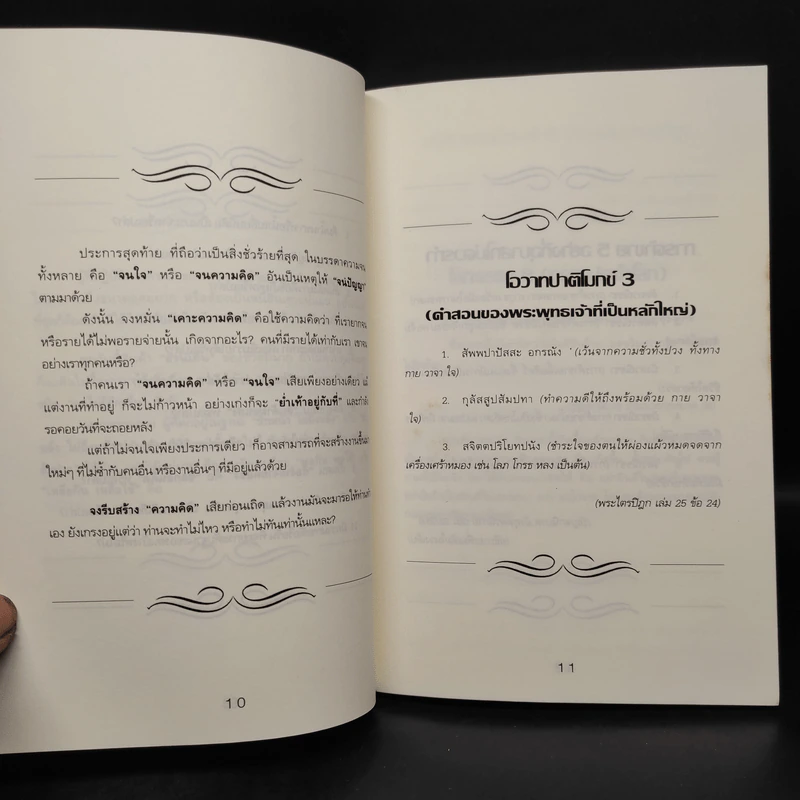 ประการสุดท้าย ที่ถือว่าเป็นสิ่งชั่วร้ายที่สุด ในบรรดาความจน
ทั้งหลาย คือ "จนใจ" หรือ "จนความคิด" อันเป็นเหตุให้ "จนปัญญา"
ตามมาด้วย
ดังนั้น จงหมั่น "เคาะความคิด" คือใช้ความคิดว่า ที่เรายากจน
หรือรายได้ไม่พอรายจ่ายนั้น เกิดจากอะไร? คนที่มีรายได้เท่ากับเรา เขาจน
อย่างเราทุกคนหรือ?
ถ้าคนเรา "จนความคิด" หรือ "จนใจ" เสียเพียงอย่างเดียว
แต่งานที่ทำอยู่ ก็จะไม่ก้าวหน้า อย่างเก่งก็จะ "ย่ำเท้าอยู่กับที่" และกำลัง
รอคอยวันที่จะถอยหลัง
แต่ถ้าไม่จนใจเพียงประการเดียว ก็อาจสามารถที่จะสร้างงานขึ้นมา
ใหม่ๆ ที่ไม่ซ้ำกับคนอื่น หรืองานอื่นๆ ที่มีอยู่แล้วด้วย
จงรีบสร้าง "ความคิด" เสียก่อนเถิด แล้วงานมันจะมารอให้ท่านทำ
เอง ยังเกรงอยู่แต่ว่า ท่านจะทำไม่ไหว หรือทำไม่ทันเท่านั้นแหละ?
10
โอวาทปาติโมกข์ 3
(คำสอนของพระพุทธเจ้าที่เป็นหลักใหญ่)
1. สัพพปาปัสสะ อกรณัง (เว้นจากความชั่วทั้งปวง ทั้งทาง
กาย วาจา ใจ)
2. กุสัสสูปสัมปทา (ทำความดีให้ถึงพร้อมด้วย กาย วาจา
ใจ)
3. สจิตตปริโยทปนัง (ชำระใจของตนให้ผ่องแผ้วหมดจดจาก
เครื่องเศร้าหมอง เช่น โลภ โกรธ หลง เป็นต้น)
(พระไตรปิฎก เล่ม 25 ข้อ 24)
11